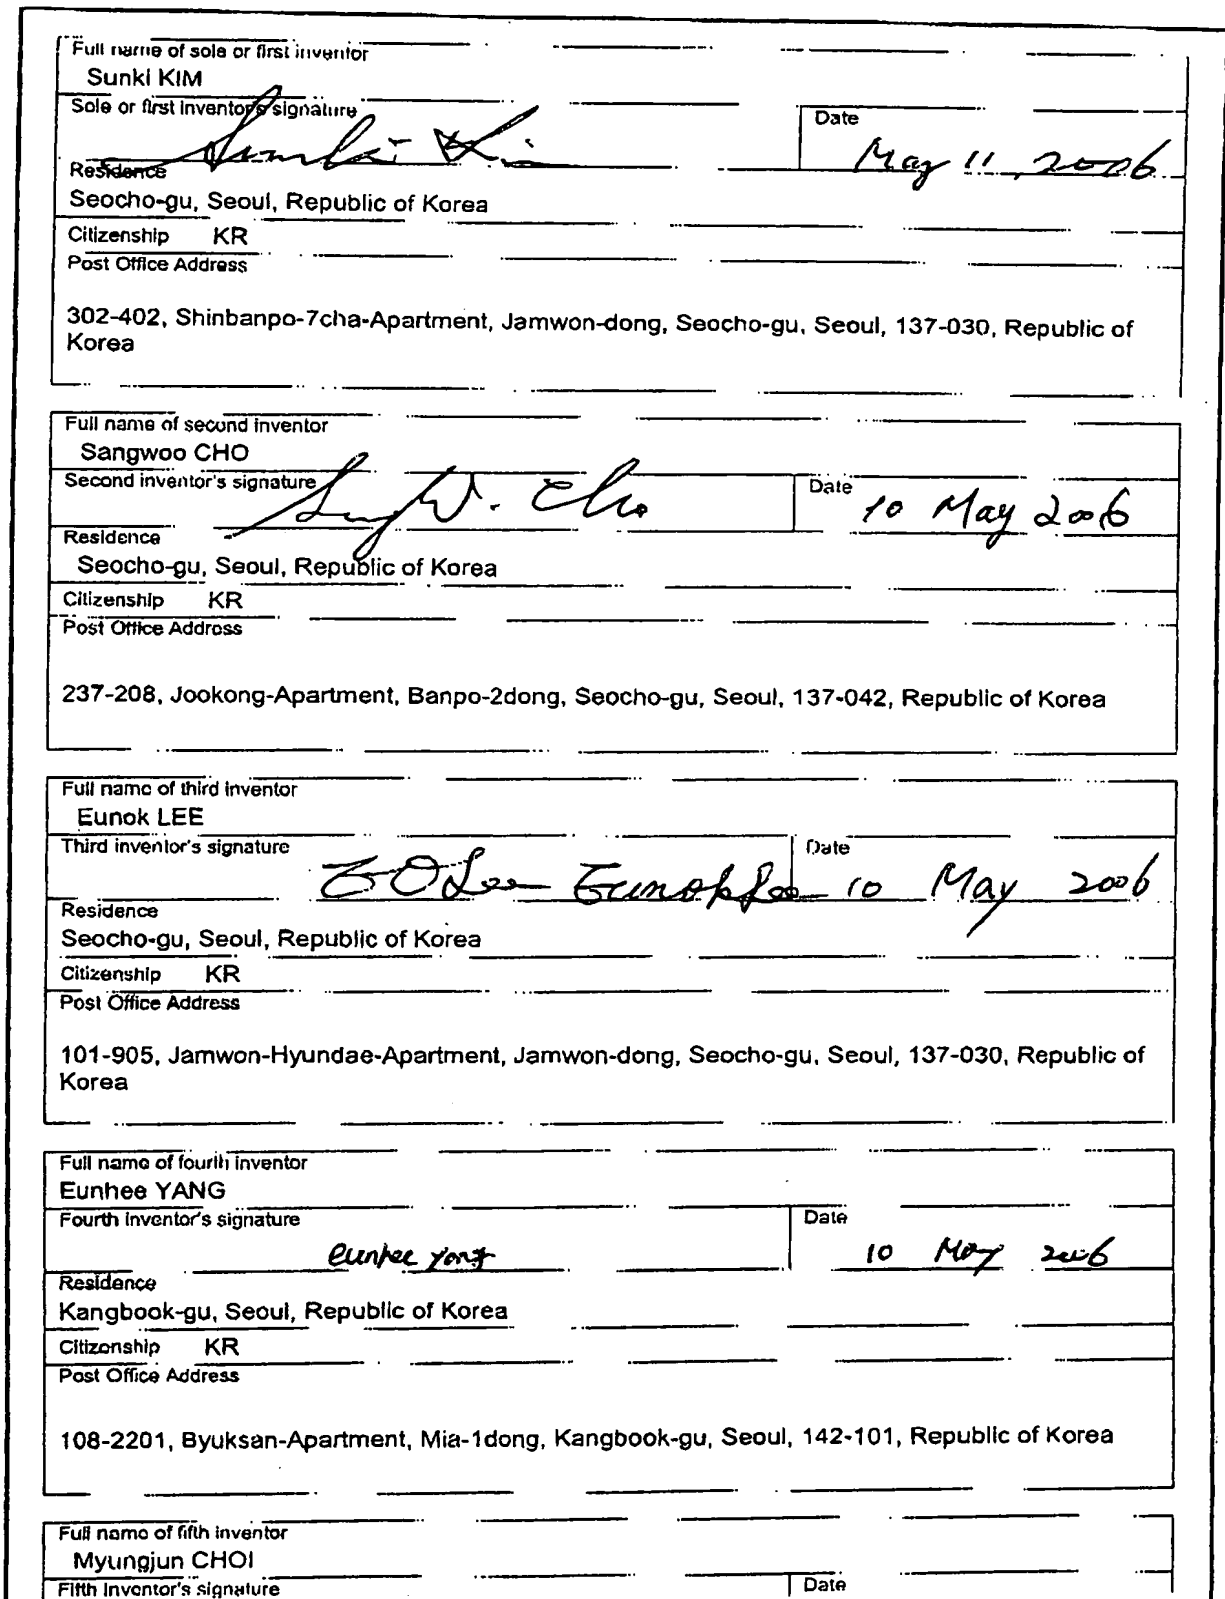 Full name of sole or first inventor
Sunki KIM
Sole or first inventor's signature Date
Sunki Kim May 11, 2006
Residence
Seocho-gu, Seoul, Republic of Korea
Citizenship KR
Post Office Address
302-402, Shinbanpo-7cha-Apartment, Jamwon-dong, Seocho-gu, Seoul, 137-030, Republic of
Korea
Full name of second inventor
Sangwoo CHO
Second inventor's signature Date
W. Cho 10 May 2006
Residence
Seocho-gu, Seoul, Republic of Korea
Citizenship KR
Post Office Address
237-208, Jookong-Apartment, Banpo-2dong, Seocho-gu, Seoul, 137-042, Republic of Korea
Full name of third inventor
Eunok LEE
Third inventor's signature Date
E O Lee Eunok Lee 10 May 2006
Residence
Seocho-gu, Seoul, Republic of Korea
Citizenship KR
Post Office Address
101-905, Jamwon-Hyundae-Apartment, Jamwon-dong, Seocho-gu, Seoul, 137-030, Republic of
Korea
Full name of fourth inventor
Eunhee YANG
Fourth inventor's signature Date
eunhee yang 10 May 2006
Residence
Kangbook-gu, Seoul, Republic of Korea
Citizenship KR
Post Office Address
108-2201, Byuksan-Apartment, Mia-1dong, Kangbook-gu, Seoul, 142-101, Republic of Korea
Full name of fifth inventor
Myungjun CHOI
Fifth inventor's signature Date